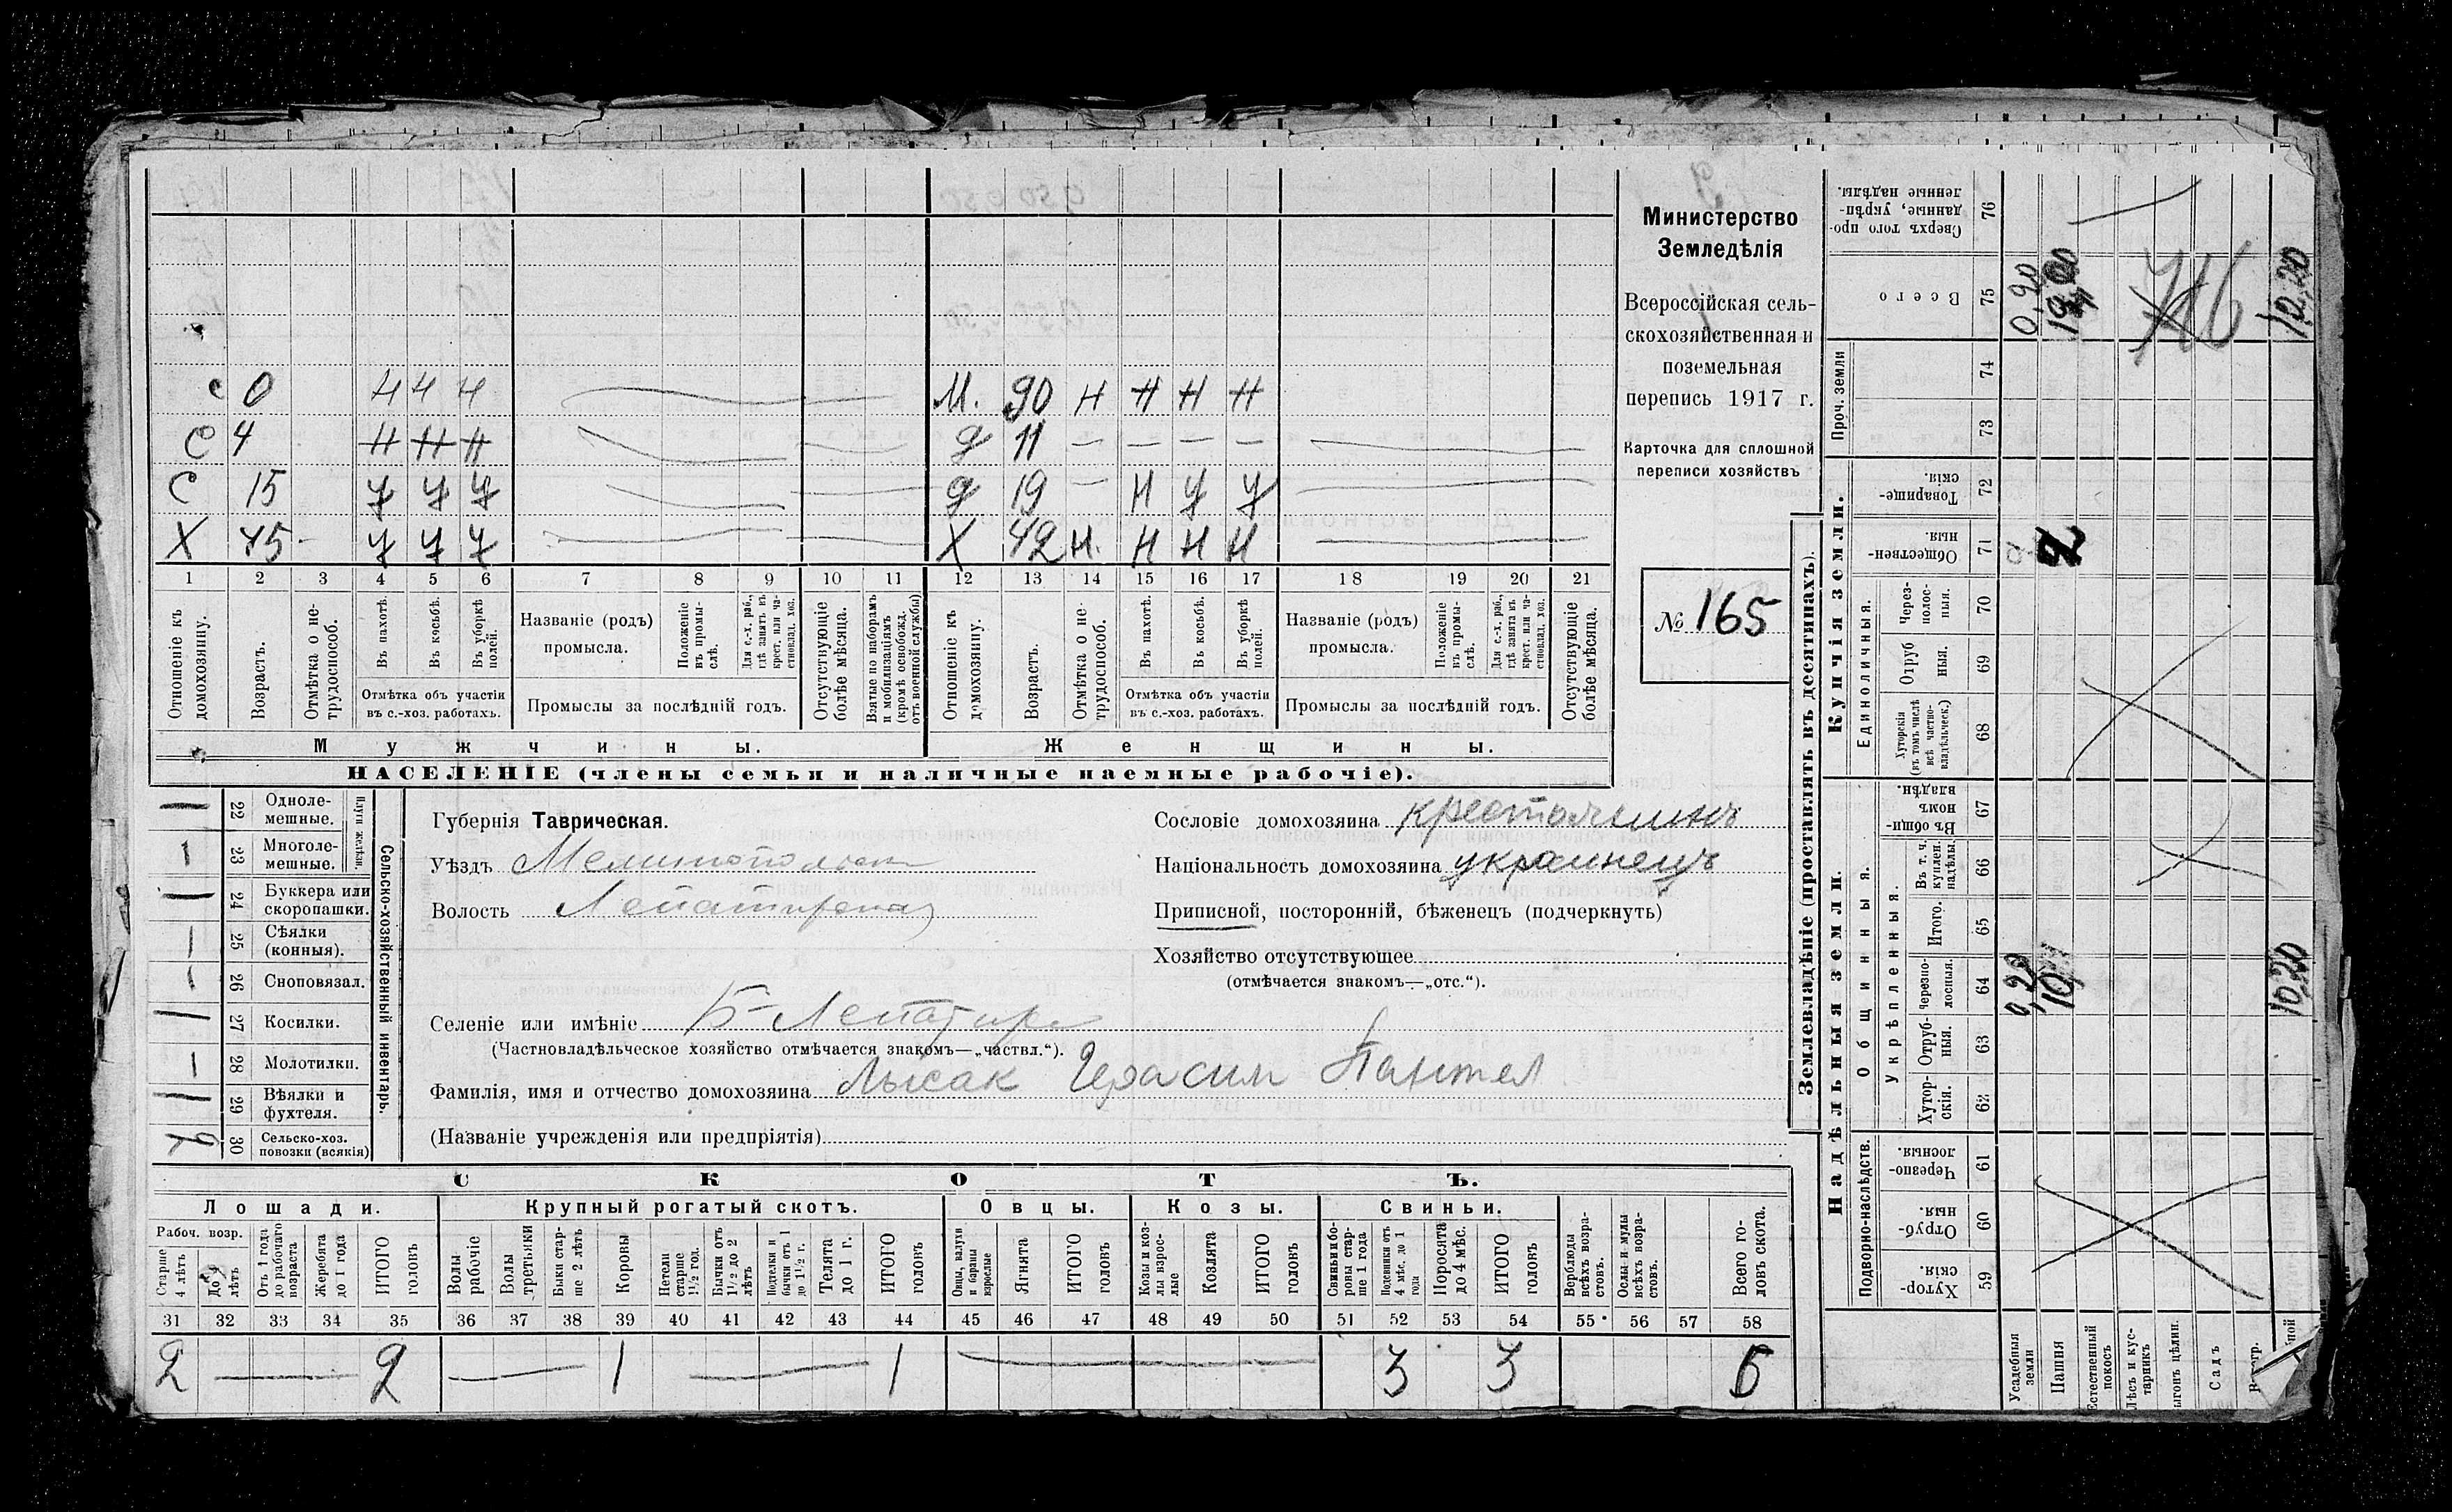 с 0 Н Н Н М. 90 Н Н Н Н
С 4 Н Н Н д 11 — — — —
С 15 У У У д 19 — Н У У
Х 45 - У У У Х 42 Н. Н Н Н
1 2 3 4 5 6 7 8 9 10 11 12 13 14 15 16 17 18 19 20 21
Отношеніе къ домохозяину.
Возрастъ.
Отмѣтка о не-трудоспособ.
Въ пахотѣ.
Въ косьбѣ.
Въ уборкѣ полей.
Отмѣтка объ участіи
въ с.-хоз. работахъ.
Названіе (родъ)
промысла.
Положеніе въ промы-слѣ.
Для с.-х. раб., гдѣ занятъ въ крест. или ча-стновлад. хоз.
Промыслы за послѣдній годъ.
Отсутствующіе болѣе мѣсяца.
Взятые по наборамъ и мобилизаціямъ (кромѣ освобожд. отъ военной службы)
Отношеніе къ домохозяину.
Возрастъ.
Отмѣтка о не-трудоспособ.
Въ пахотѣ.
Въ косьбѣ.
Въ уборкѣ полей.
Отмѣтка объ участіи
въ с.-хоз. работахъ.
Названіе (родъ)
промысла.
Положеніе въ промы-слѣ.
Для с.-х. раб., гдѣ занята въ крест. или ча-стновлад. хоз.
Промыслы за послѣдній годъ.
Отсутствующіе болѣе мѣсяца.
Мужчины.
Женщины.
НАСЕЛЕНІЕ (члены семьи и наличные наемные рабочіе).
Министерство
Земледѣлія
Всероссійская сель-
скохозяйственная и
поземельная
перепись 1917 г.
Карточка для сплошной
переписи хозяйствъ
№ 165
22 Одноле-мешные.
23 Многоле-мешные.
Плуги желѣзн.
24 Буккера или скоропашки.
25 Сѣялки (конныя).
26 Сноповязал.
27 Косилки.
28 Молотилки.
29 Вѣялки и фухтеля.
30 Сельско-хоз. повозки (всякія)
Сельско-хозяйственный инвентарь.
Губернія Таврическая.
Уѣздъ Мелитопольск
Волость Лепатирская
Сословіе домохозяина крестьянинъ
Національность домохозяина украинецъ
Приписной, посторонній, бѣженецъ (подчеркнуть)
Хозяйство отсутствующее
(отмѣчается знакомъ—„отс.“).
Селеніе или имѣніе Б-Лепатир
(Частновладѣльческое хозяйство отмѣчается знакомъ—„частвл.“).
Фамилія, имя и отчество домохозяина Лысак Герасим Пантел
(Названіе учрежденія или предпріятія)
СКОТЪ.
Лошади. Крупный рогатый скотъ. Овцы. Козы. Свиньи.
Рабоч. возр.
Старше 4 лѣтъ
До 4 лѣтъ
Отъ 1 года до рабочаго возраста
Жеребята до 1 года
ИТОГО головъ
Волы рабочіе
Волы третьяки
Быки стар-ше 2 лѣтъ
Коровы
Нетели старше 1½ год.
Бычки отъ 1½ до 2 лѣтъ
Подтелки и бычки отъ 1 до 1½ г.
Телята до 1 г.
ИТОГО головъ
Овцы, валухи и бараны взрослые
Ягнята
ИТОГО головъ
Козы и коз-лы взрос-лые
Козлята
ИТОГО головъ
Свиньи и бо-ровы стар-ше 1 года
Подсвинки отъ 4 мѣс. до 1 года
Поросята до 4 мѣс.
ИТОГО головъ
Верблюды всѣхъ возра-стовъ.
Ослы и мулы всѣхъ возра-стовъ.
Всего го-ловъ скота.
31 32 33 34 35 36 37 38 39 40 41 42 43 44 45 46 47 48 49 50 51 52 53 54 55 56 57 58
2 — 2 — 1 — 1 — 3 3 6
Землевладѣніе (проставлять въ десятинахъ).
Купчія земли.
Надѣльныя земли.
Сверхъ того про-данные, укрѣп-ленные надѣлы. 76
Всего 75
Проч. земли 74 73
Товарище-скія. 72
Обществен-ныя. 71
Единоличныя.
Через-полос-ныя. 70
Отруб ныя. 69
Хуторскія (въ томъ числѣ всѣ частно-владѣльческ.) 68
Общинныя.
Въ общи-номъ владѣн. 67
Въ т. ч. куплен. надѣлы. 66
Укрѣпленныя.
Итого. 65
Черезпо-лосныя. 64
Отруб-ныя. 63
Хутор-скія. 62
Подворно-наслѣдств.
Черезпо-лосныя. 61
Отруб-ныя. 60
Хутор-скія. 59
Усадебныя земли
Пашня
Естественный покосъ
Лѣсъ и кус-тарникъ
ыгонъ цѣлин.
Садъ
0,20
10,20
2
0,20
10
10,20